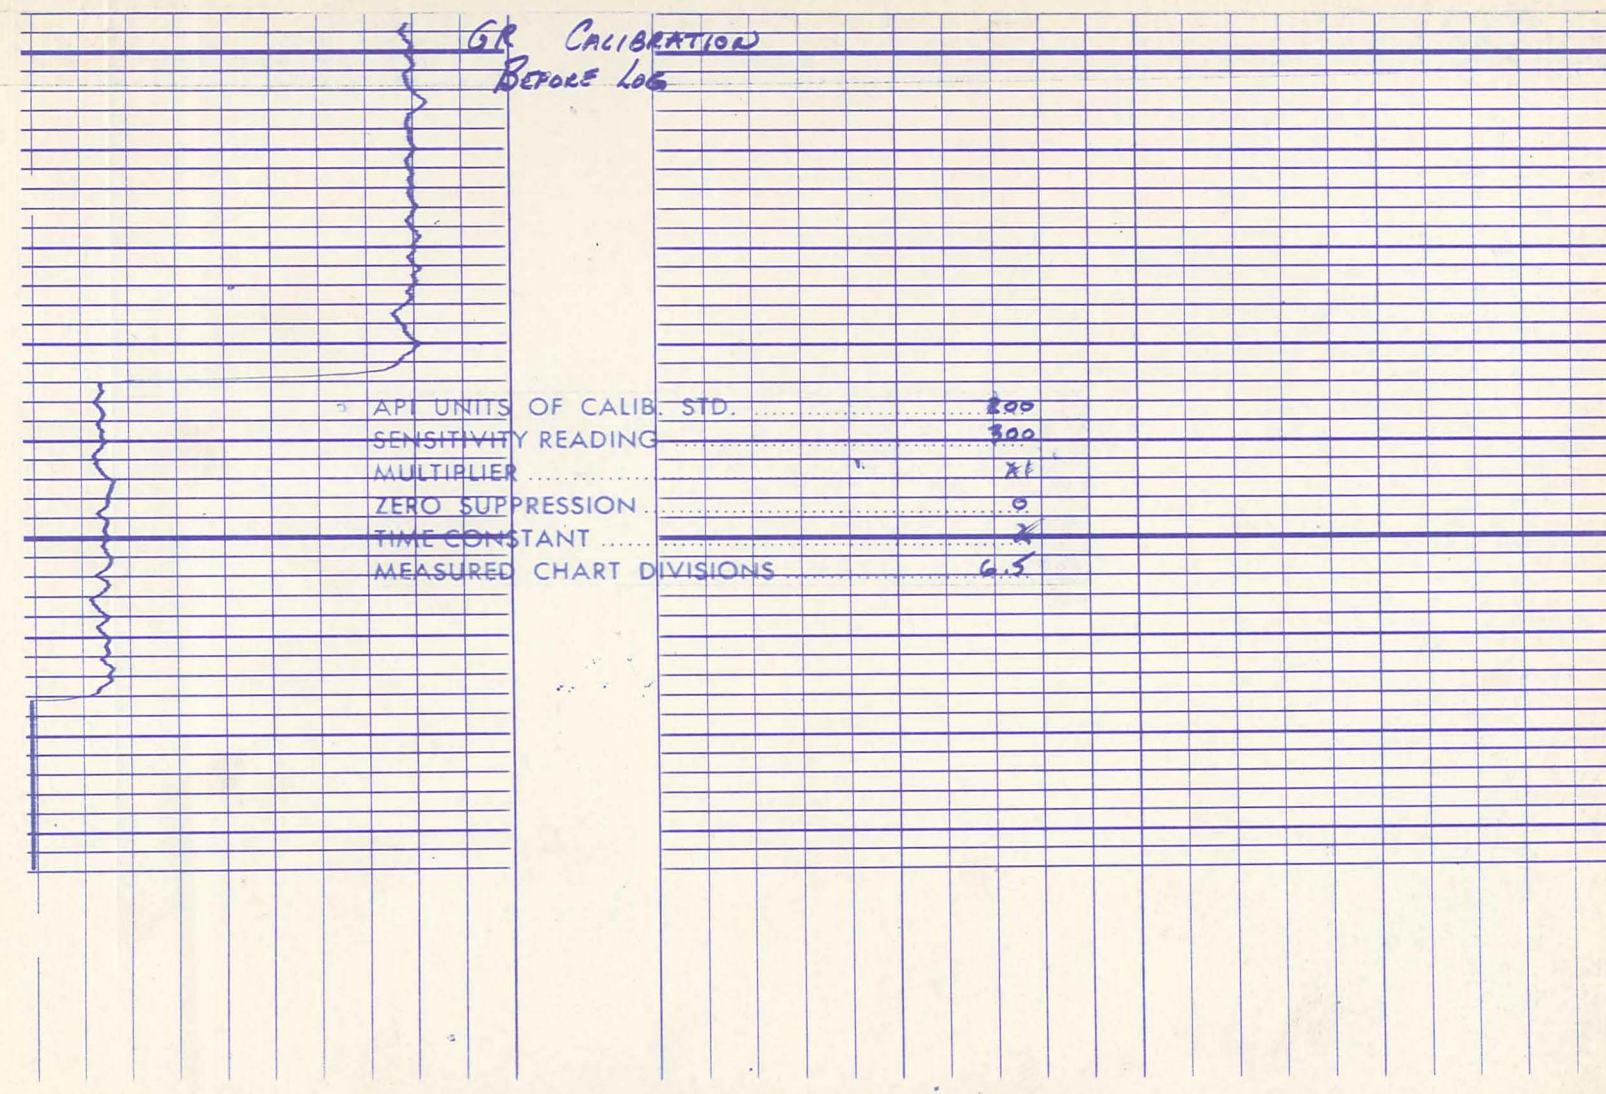 GR CALIBRATION
BEFORE LOG
API UNITS OF CALIB. STD. 200
SENSITIVITY READING 300
MULTIPLIER X1
ZERO SUPPRESSION 0
TIME CONSTANT
MEASURED CHART DIVISIONS 6.5